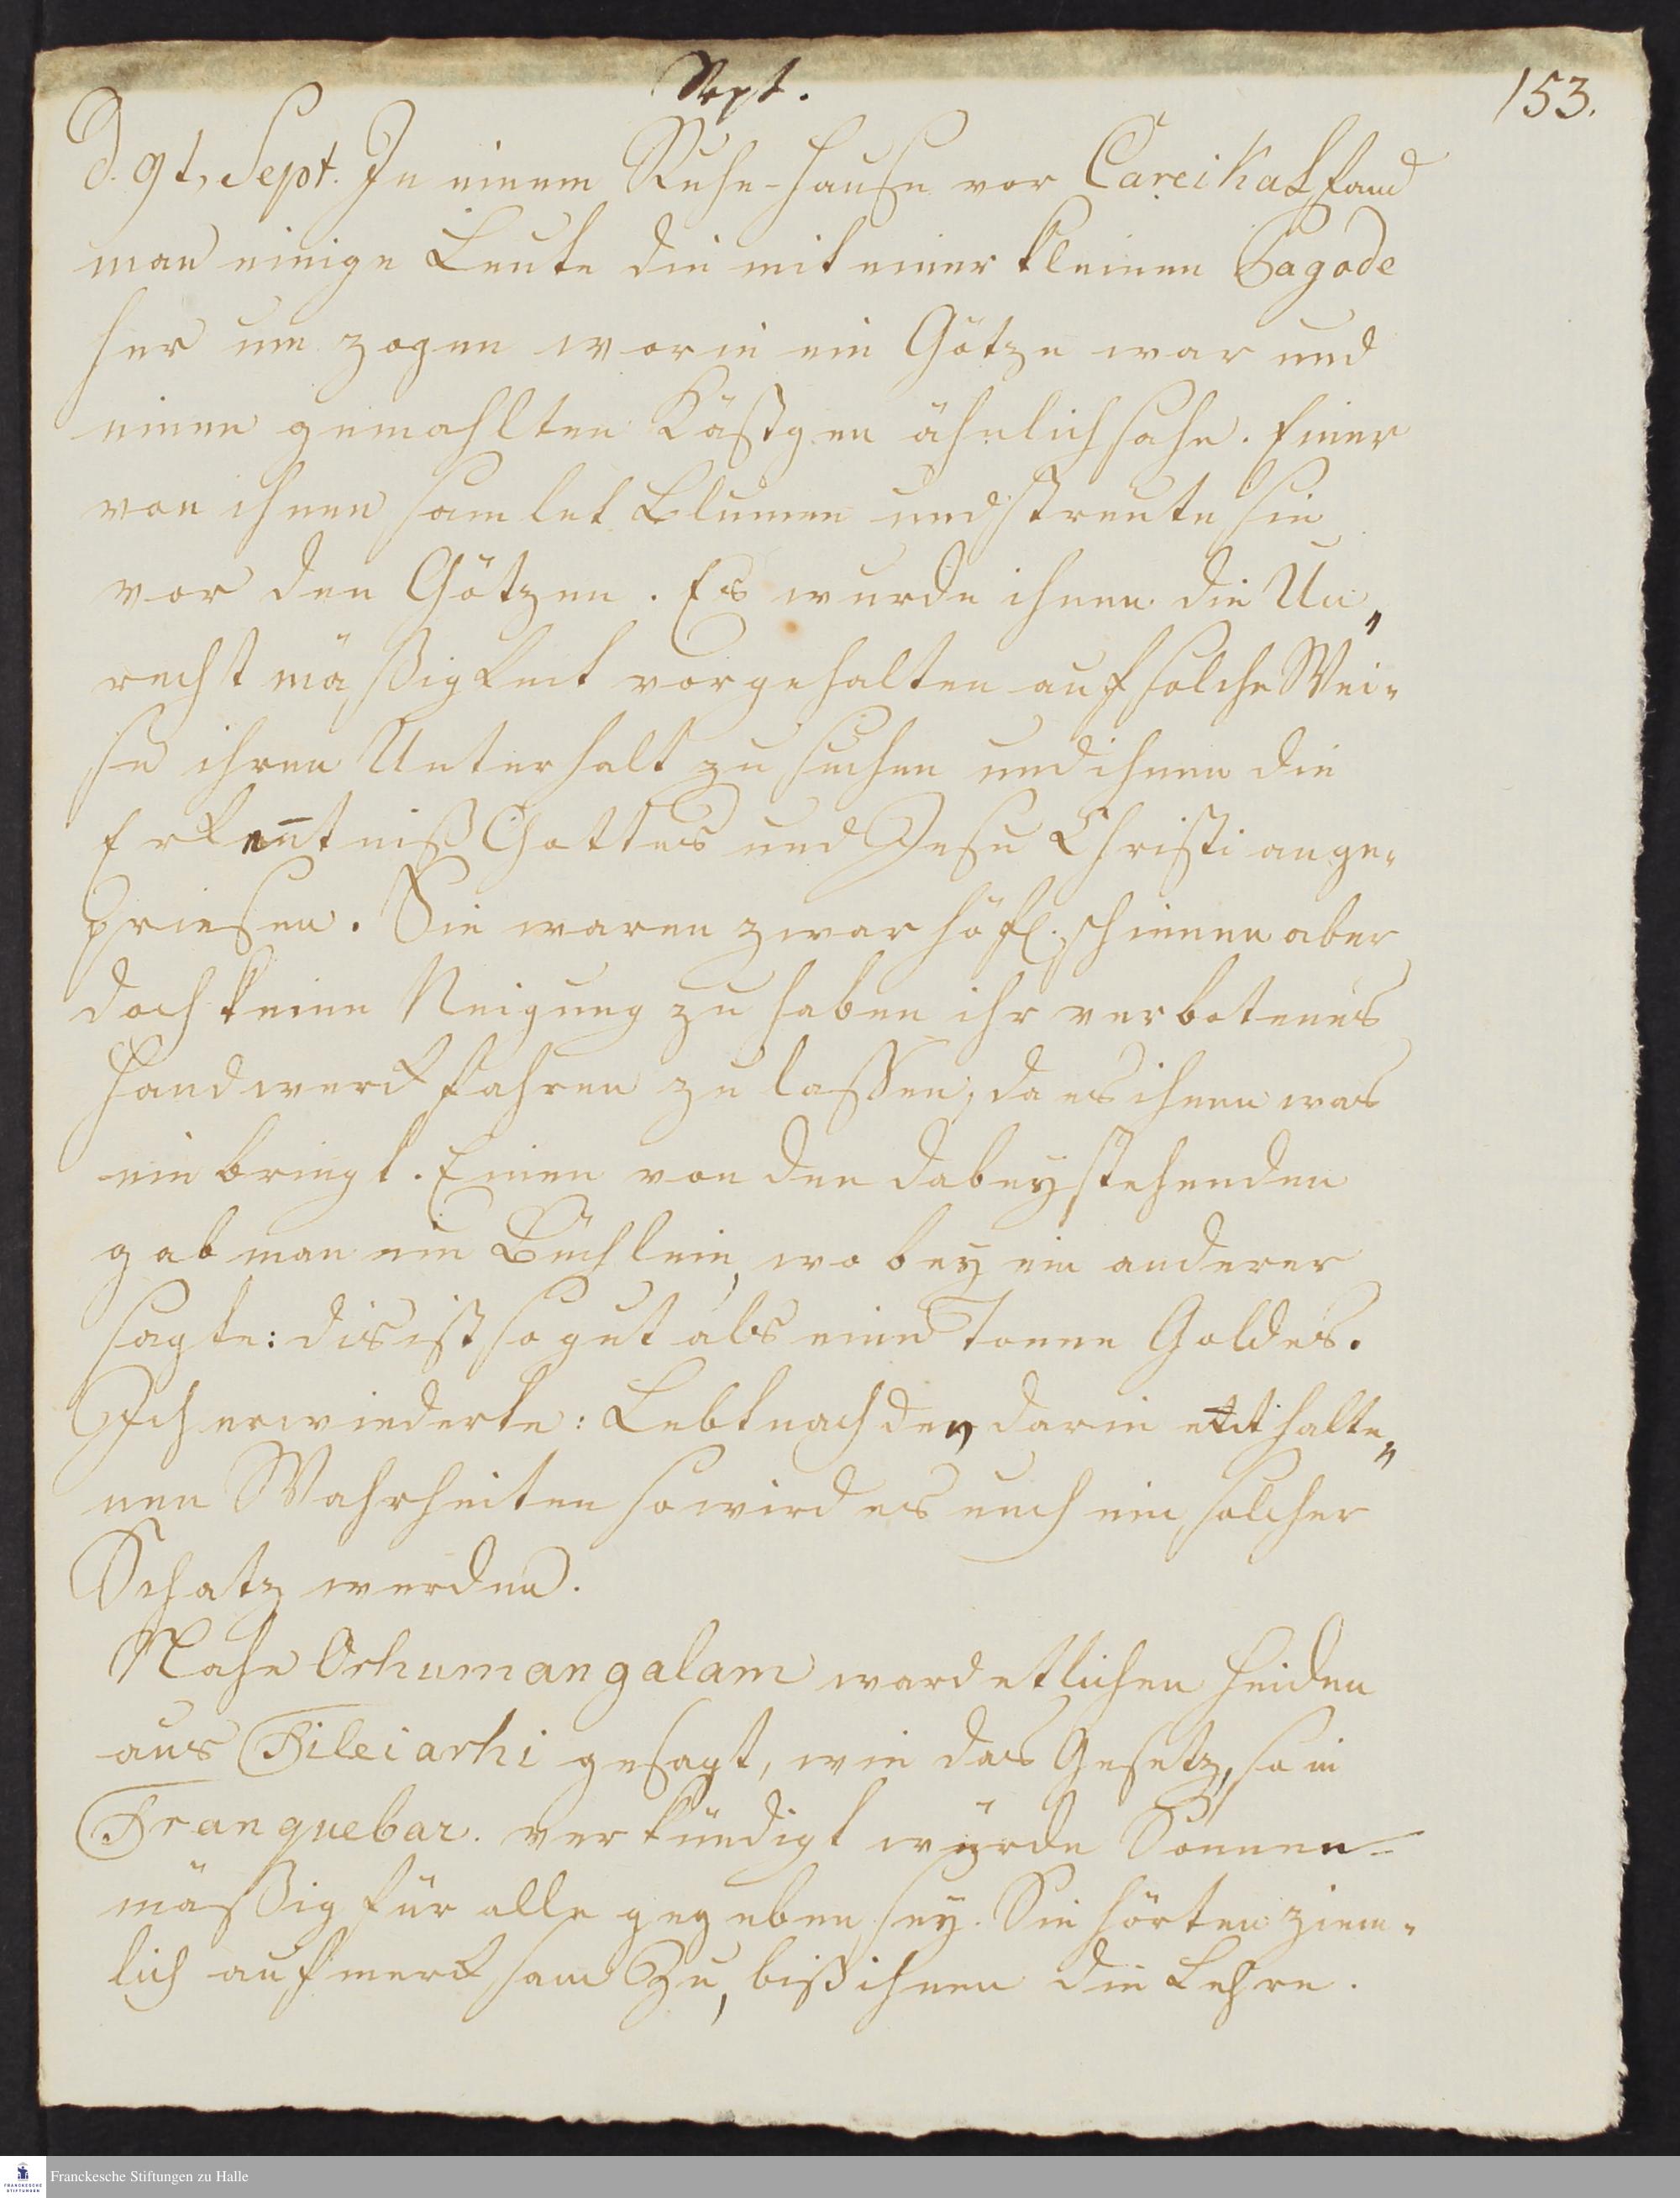 Sept.
153.
D. 9t. Sept. In einem Ruhe-Hause vor Careikal fand
man einige Leute die mit einer kleinen Pagode
her um zogen worin ein Götze war und
einen gemahlten Kästgen ähnlich sahe. Einer
von ihnen samlet Blumen und streute sie
vor den Götzen. Es wurde ihnen die Un„
recht mäßigkeit vorgehalten auf solche Wei-
se ihren Unterhalt zu suchen und ihnen die
Erken̄tniß Gottes und Jesu Christi ange-
priesen. Sie waren zwar höfl. schienen aber
doch keine Neigung zu haben ihr verbotenes
Handwerck fahren zu lassen, da es ihnen was
ein bringt. Einen von den dabeystehenden
gab man ein Büchlein, wobey ein anderer
sagte: dis ist so gut als eine Tonne Goldes.
Ich erwiederte: Lebt nach den darin enthalte„
nen Wahrheiten so wird es euch ein solcher
Schatz werden.
Nahe Orhumangalam ward etlichen Heiden
aus Tileiarhi gesagt, wie das Gesetz, so in
Tranquebar. verkündigt würde Sonnen-
mäßig für alle gegeben sey. Sie hörten ziem-
lich aufmercksam zu, biß ihnen die Lehre.
Franckesche Stiftungen zu Halle